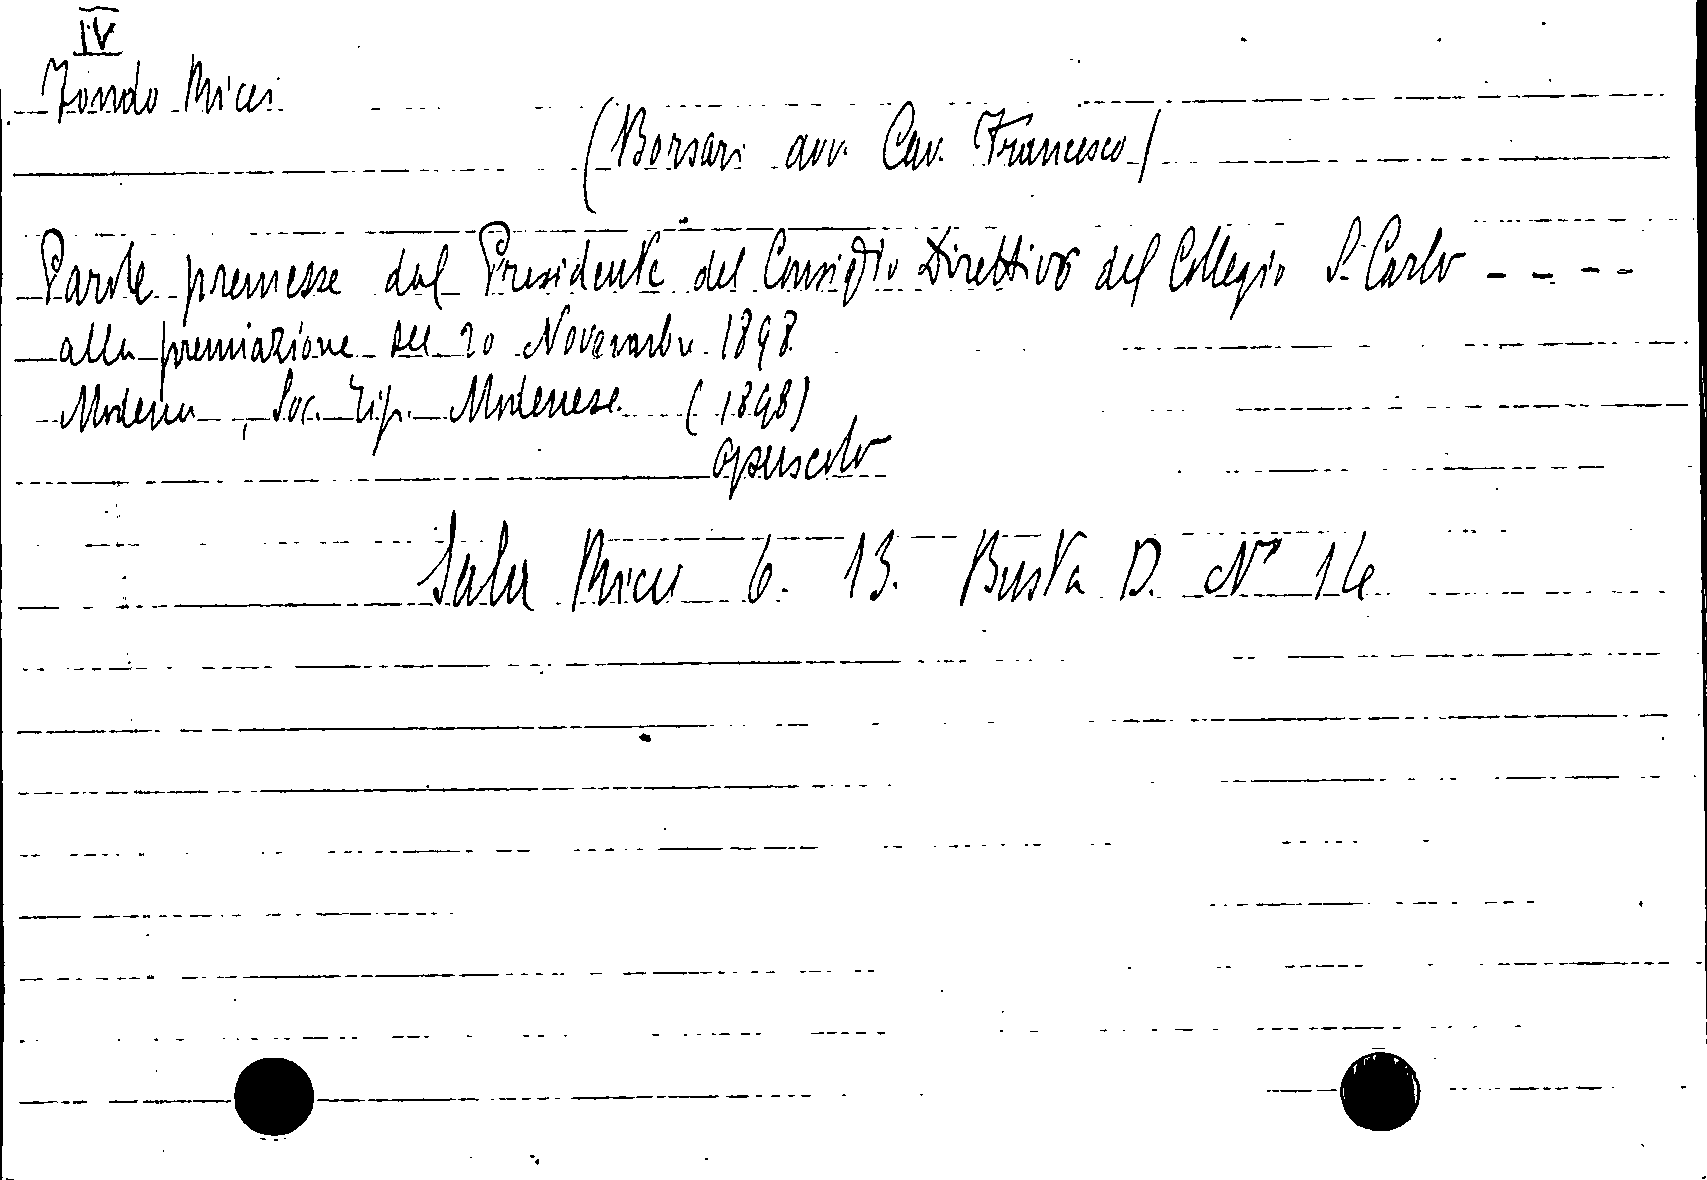 IV
Fondo Ricci
(Borsari avv. Cav. Francesco)
Parole premesse dal Presidente del Consiglio Direttivo del Collegio S. Carlo - - - -
alla premiazione del 20 Novembre 1898
Modena, Soc. Tip. Modenese (1898)
opuscolo
Sala Ricci 6. 13. Busta D. N° 14